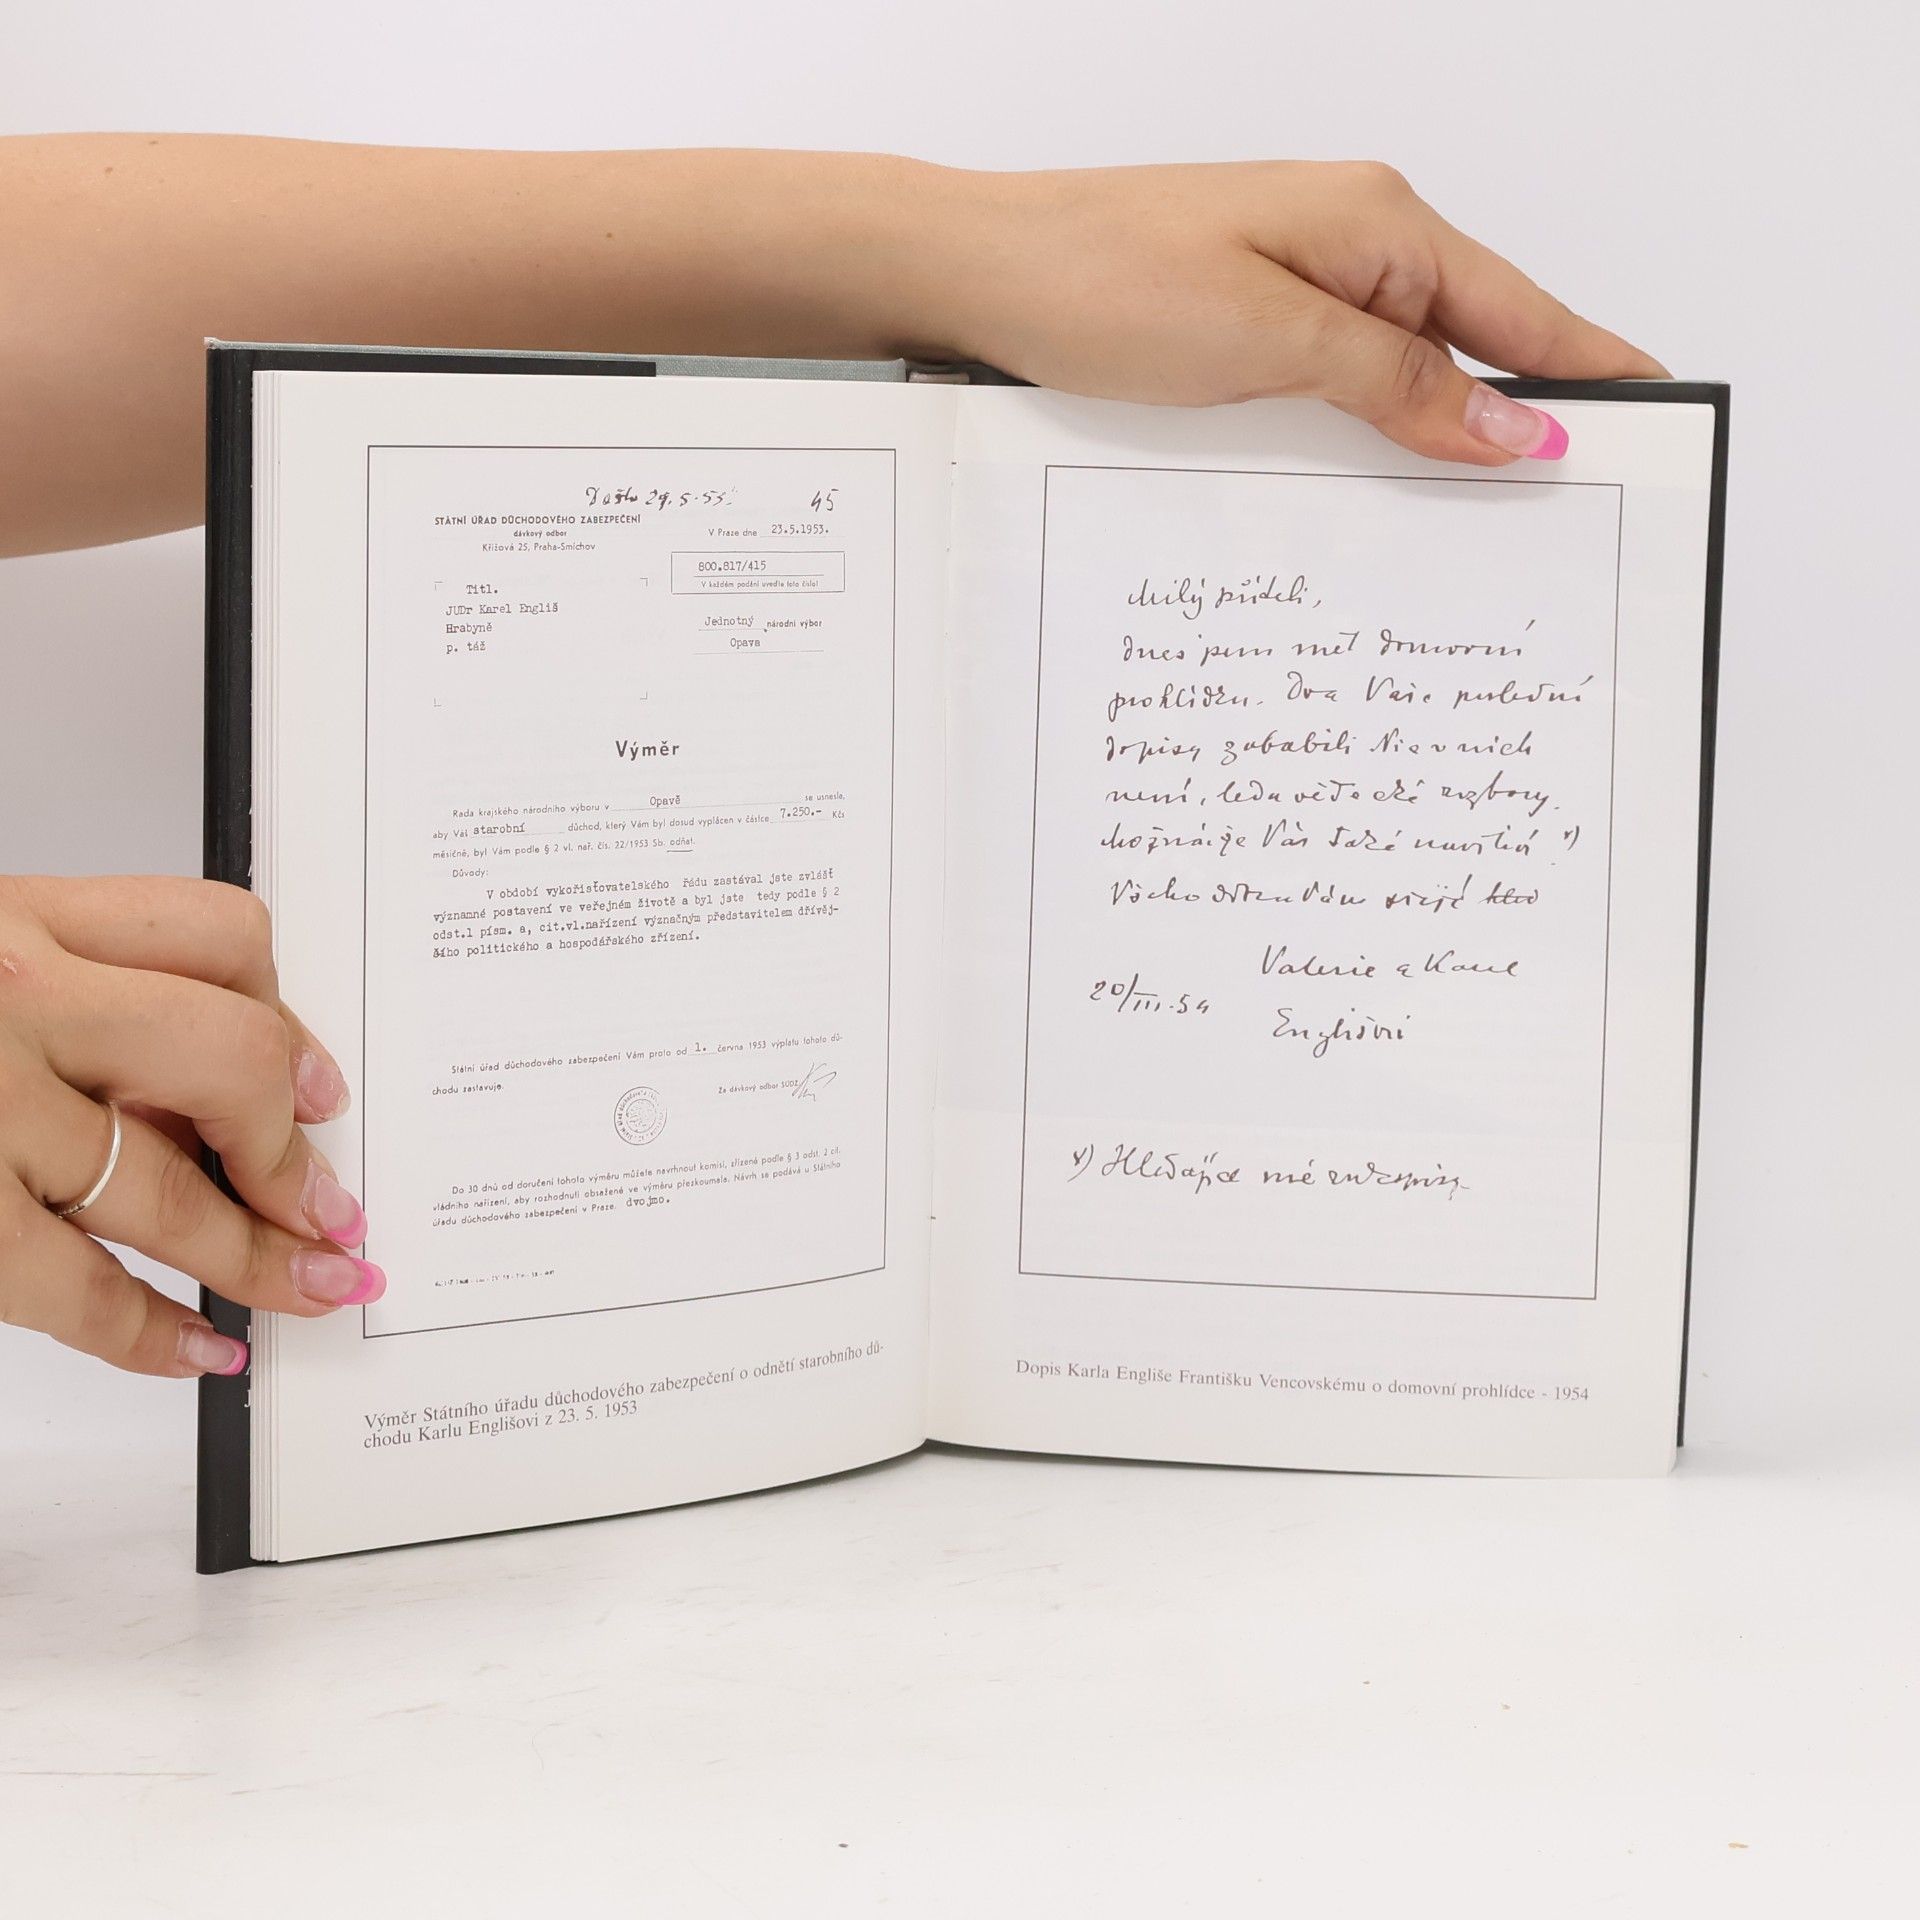 Došlo 29.5.53. 45
STÁTNÍ ÚŘAD DŮCHODOVÉHO ZABEZPEČENÍ
dávkový odbor
Křížová 25, Praha-Smíchov
V Praze dne 23.5.1953.
800.817/415
V každém podání uveďte toto číslo!
Titl.
JUDr Karel Engliš
Hrabyně
p. táž
Jednotný národní výbor
Opava
Výměr
Rada krajského národního výboru v Opavě se usnesla,
aby Váš starobní důchod, který Vám byl dosud vyplácen v částce 7.250.- Kčs
měsíčně, byl Vám podle § 2 vl. nař. čís. 22/1953 Sb. odňat.
Důvody:
V období vykořisťovatelského řádu zastával jste zvlášť
významné postavení ve veřejném životě a byl jste tedy podle § 2
odst.1 písm. a, cit.vl.nařízení význačným představitelem dřívěj-
šího politického a hospodářského zřízení.
Státní úřad důchodového zabezpečení Vám proto od 1. června 1953 výplatu tohoto dů-
chodu zastavuje.
Za dávkový odbor SÚDZ
Do 30 dnů od doručení tohoto výměru můžete navrhnout komisi, zřízené podle § 3 odst. 2 cit.
vládního nařízení, aby rozhodnutí obsažené ve výměru přezkoumala. Návrh se podává u Státního
úřadu důchodového zabezpečení v Praze. dvojmo.
Výměr Státního úřadu důchodového zabezpečení o odnětí starobního dů-
chodu Karlu Englišovi z 23. 5. 1953
Milý příteli,
dnes jsem měl domovní
prohlídku. Dva Vaše poslední
dopisy zababili Nic v nich
není, leda vědecké rozbory.
Možná že Vás také navštíví x)
Všeho dobra Vám
Valerie a Karel
20/III.54 Englišovi
x) Hledajíce mé rukopisy
Dopis Karla Engliše Františku Vencovskému o domovní prohlídce - 1954